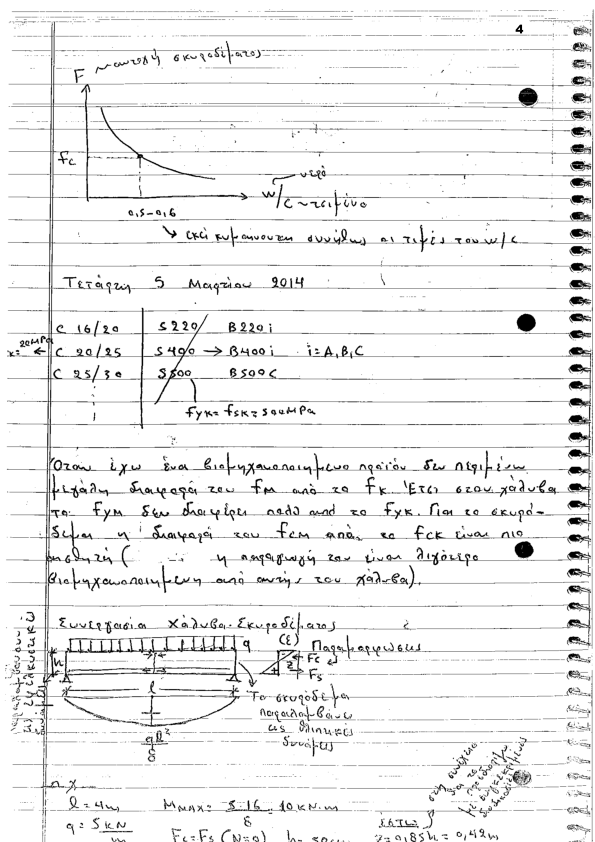 4
F ~ αντοχή σκυροδέματος
fc
νερό
w/c ~ τσιμέντο
0,5-0,6
εκεί κυμαίνονται συνήθως οι τιμές του w/c
Τετάρτη 5 Μαρτίου 2014
C 16/20 S220 B220i
20MPa ← C 20/25 S400 → B400i i=A,B,C
C 25/30 S500 B500C
fyk = fsk = 500MPa
Όταν έχω ένα βιομηχανοποιημένο προϊόν δεν περιμένω
μεγάλη διαφορά του fm από το fk. Έτσι στον χάλυβα
το fym δεν διαφέρει πολύ από το fyk. Για το σκυρό-
δεμα η διαφορά του fcm από το fck είναι πιο
αισθητή ( η παραγωγή του είναι λιγότερο
βιομηχανοποιημένη από αυτής του χάλυβα).
Συνεργασία Χάλυβα-Σκυροδέματος
q (ε) Παραμορφώσεις
h z Fc
Fs
l
Το σκυρόδεμα
παραλαμβάνει
τις θλιπτικές
δυνάμεις
παραλαμβάνουν
τις εφελκυστικές
ql²
8
π.χ
στη συνέχεια
θα το
l = 4m Mmax = 5·16 = 10 kN·m
8
ΕΣΤΩ:
q = 5 kN
m
Fc = Fs (N=0) h = 50cm z = 0,85h = 0,42m